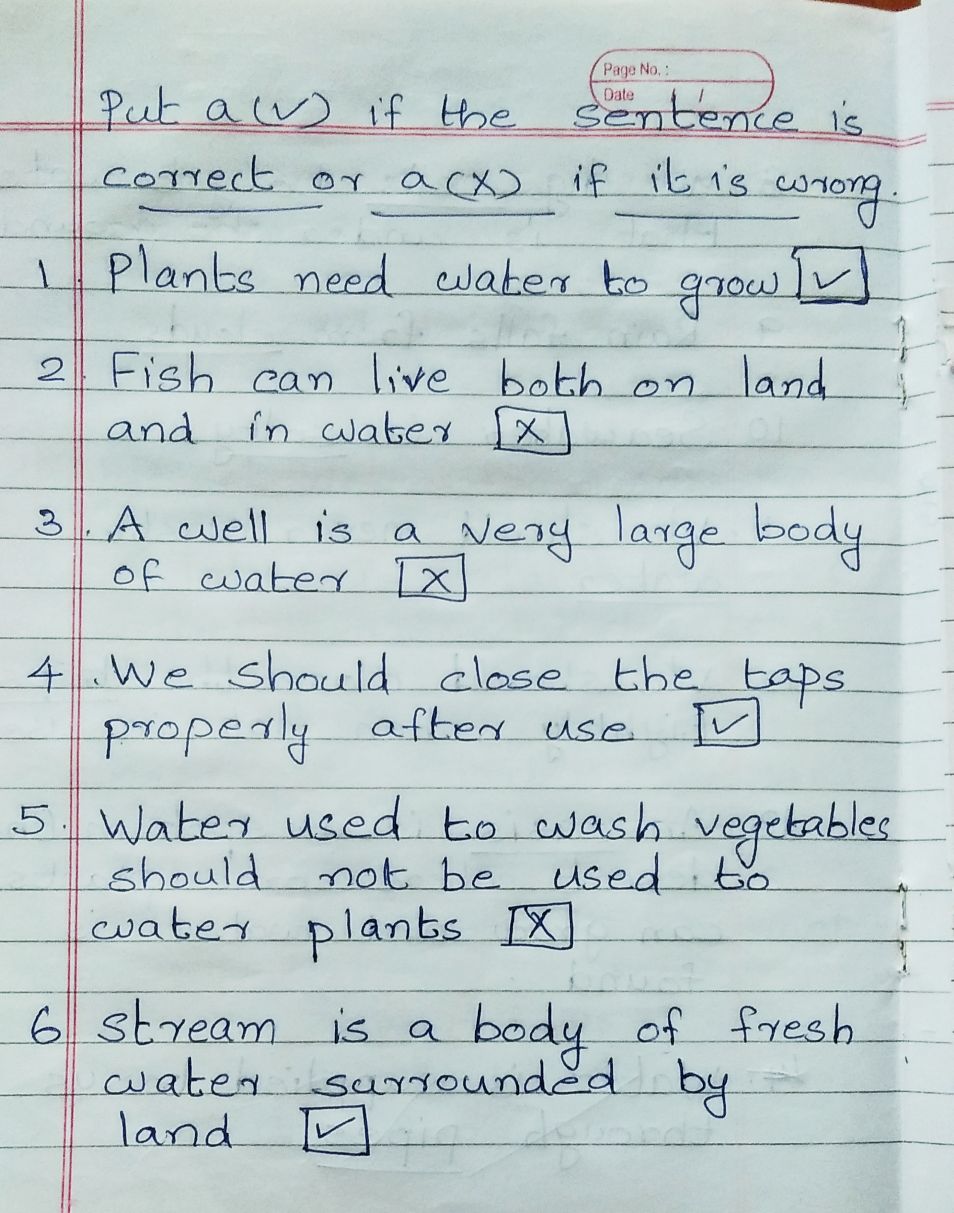 Page No. :
Date / /
Put a (✓) if the sentence is
correct or a (x) if it is wrong.
1 Plants need water to grow ✓
2. Fish can live both on land
and in water x
3. A well is a very large body
of water x
4. We should close the taps
properly after use ✓
5. Water used to wash vegetables
should not be used to
water plants x
6 Stream is a body of fresh
water surrounded by
land ✓